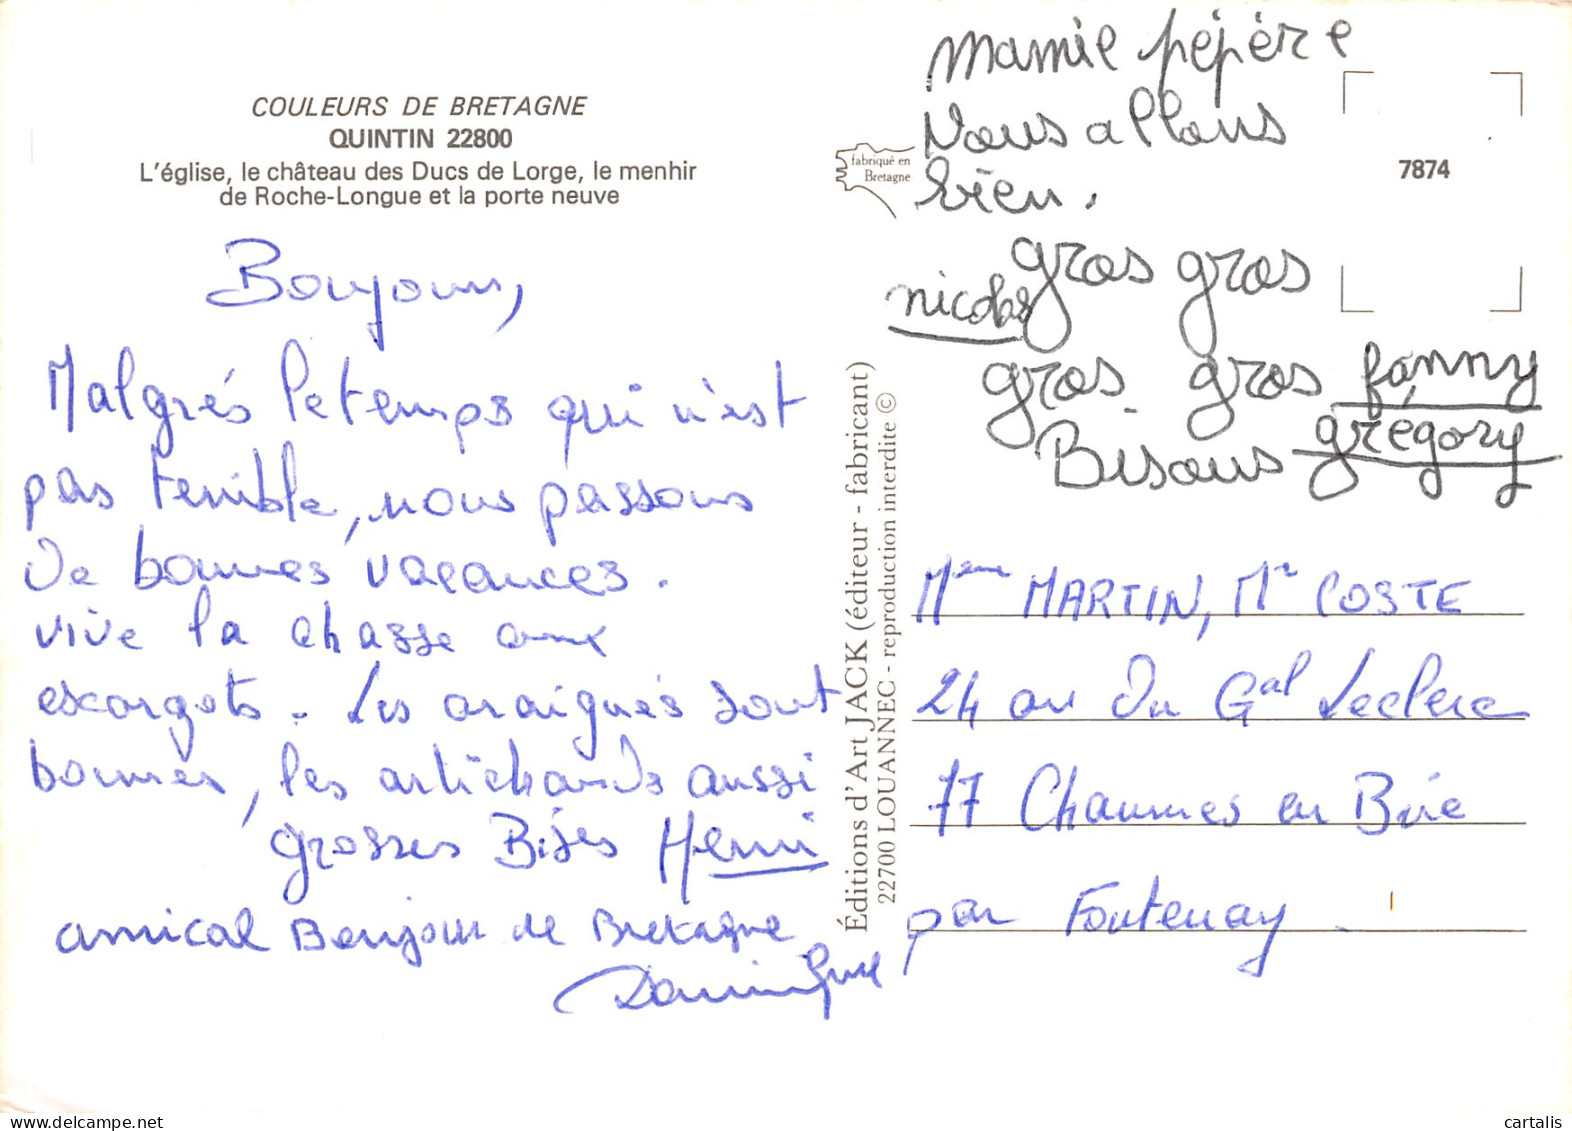 COULEURS DE BRETAGNE
QUINTIN 22800
L'église, le château des Ducs de Lorge, le menhir
de Roche-Longue et la porte neuve
Bonjour,
Malgrés le temps qui n'est
pas terrible, nous passons
de bonnes vacances.
vive la chasse aux
escargots. Les araignés sont
bonnes, les artichauds aussi
grosses Bises Henri
amical Bonjour de Bretagne
Dominique
fabriqué en
Bretagne
Éditions d'Art JACK (éditeur - fabricant)
22700 LOUANNEC - reproduction interdite ©
mamie pépére
Nous allons
bien.
gros gros
nicolas
gros gros fanny
Bisous grégory
7874
Mme MARTIN, Mr COSTE
24 av du Gal Leclerc
77 Chaumes en Brie
par Fontenay.
cartalis